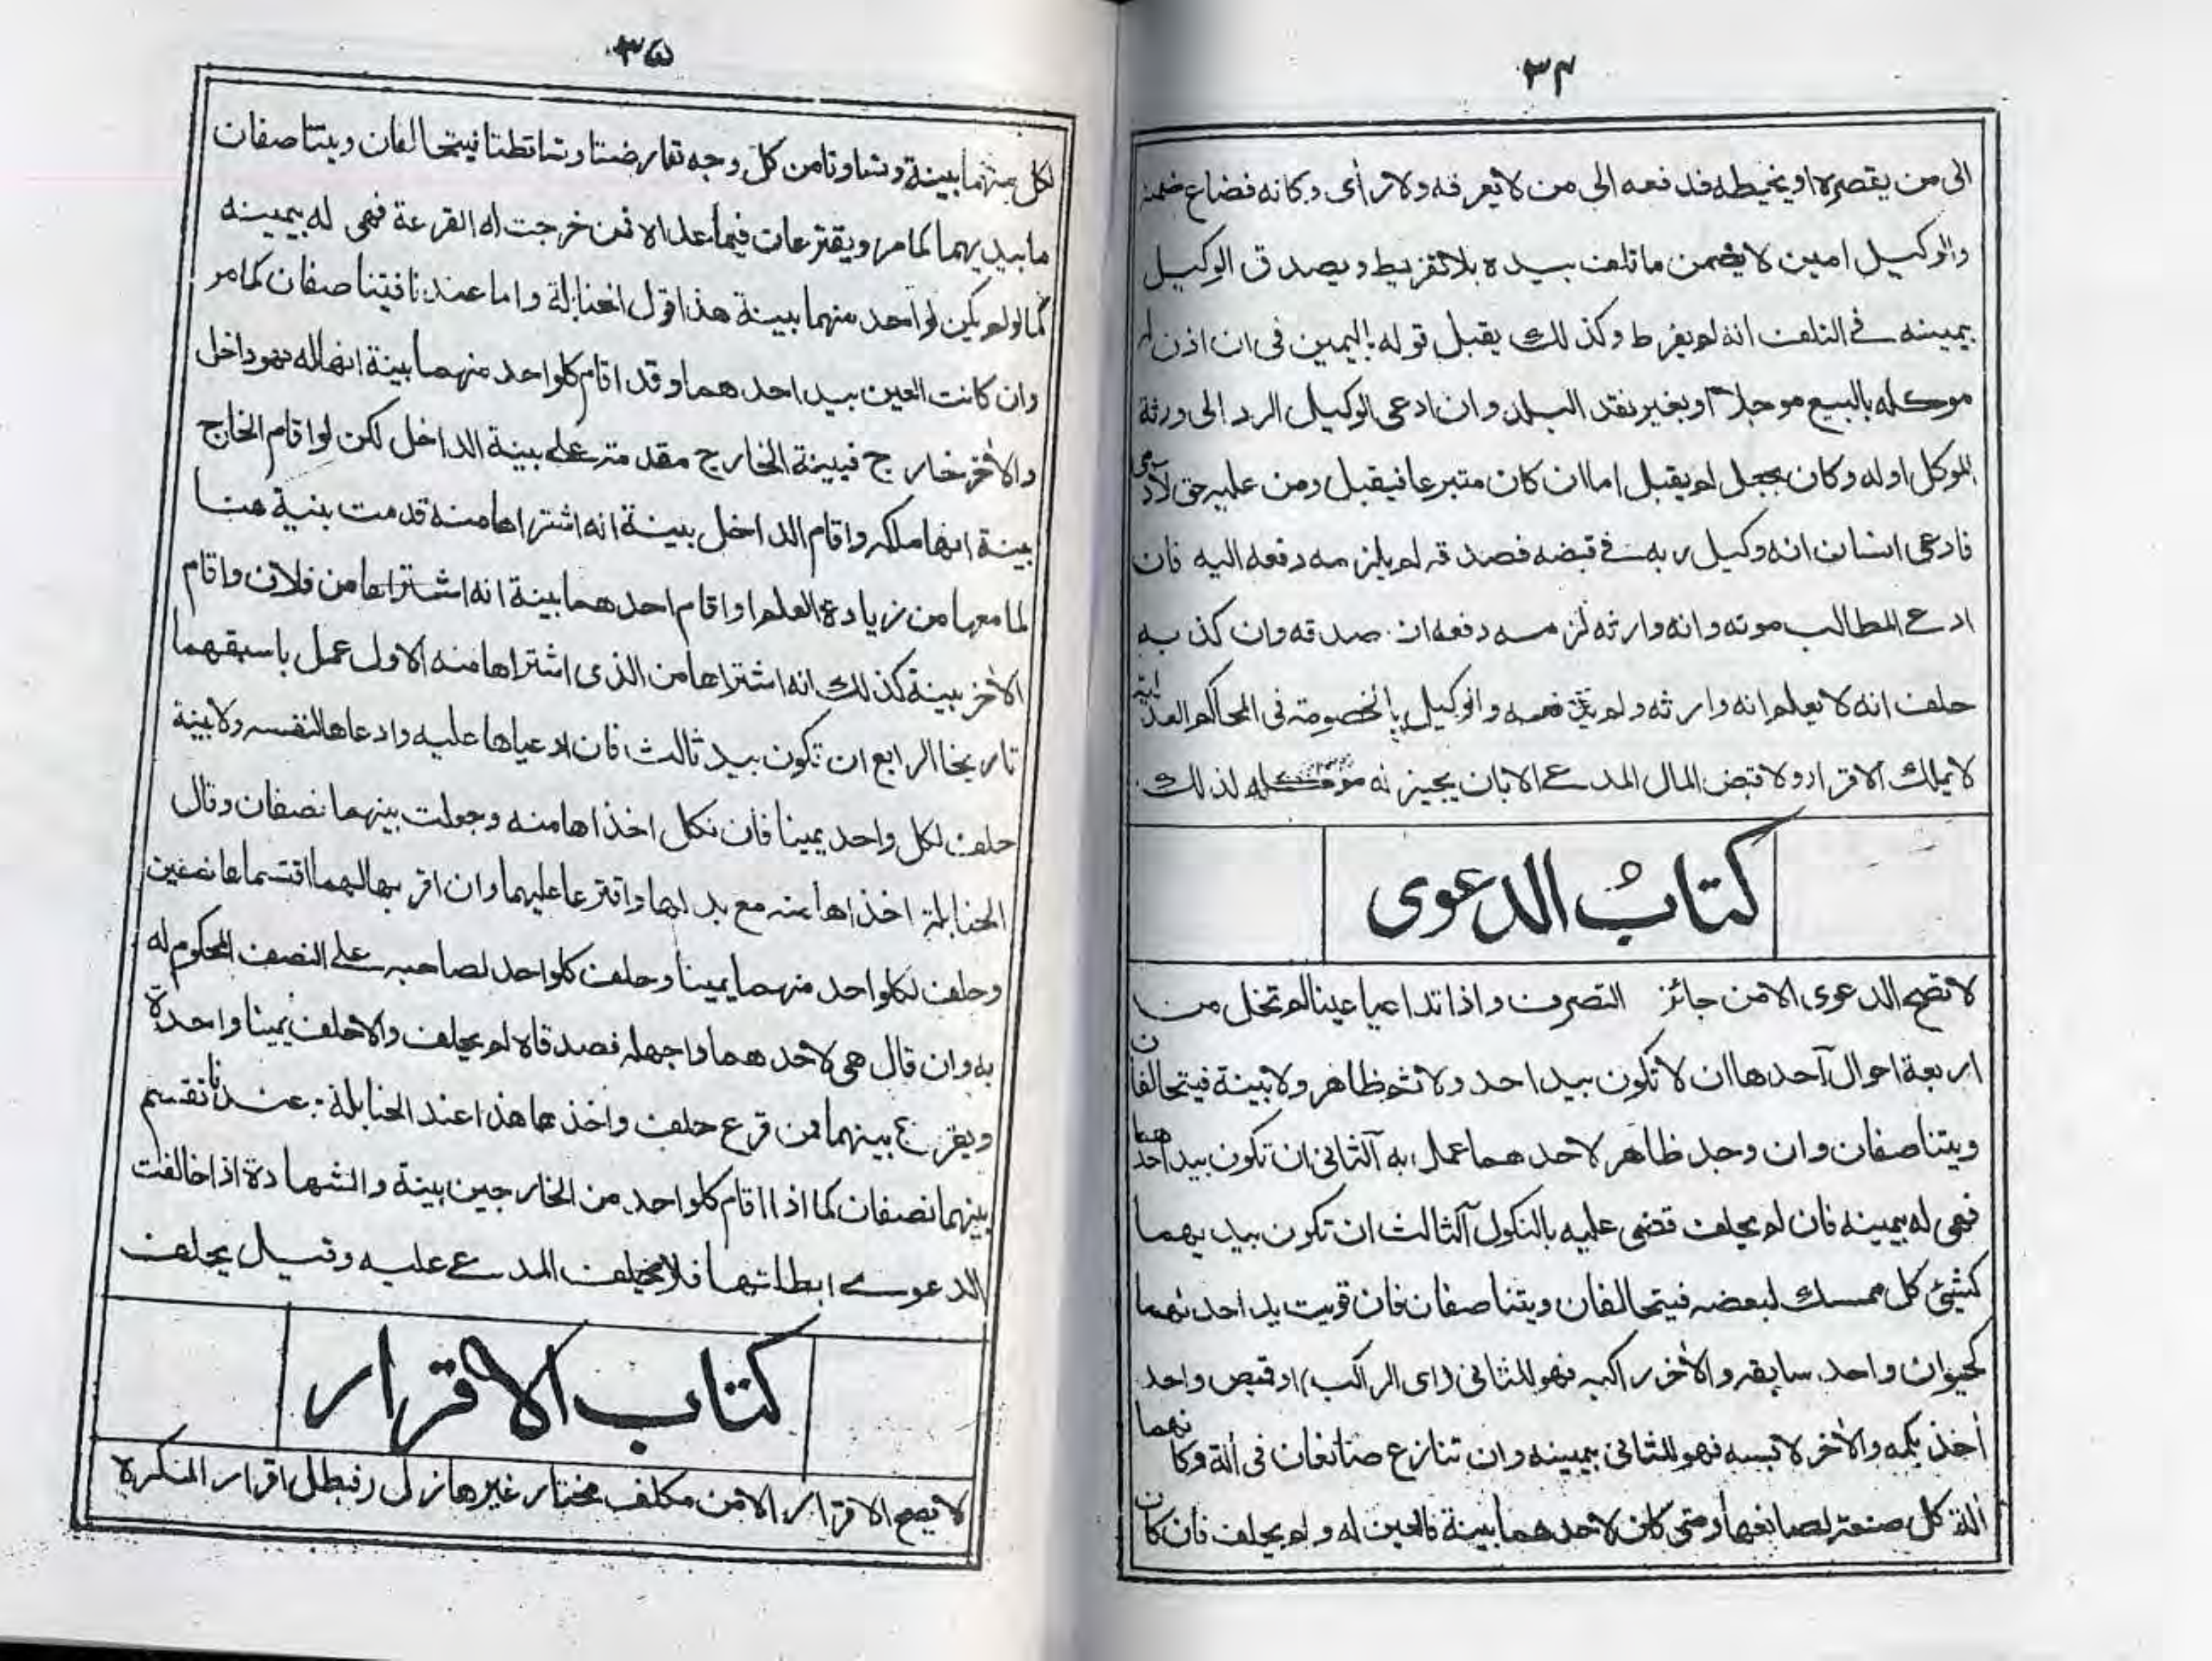 ٣٤
الى من يقصره او يخيطه فدفعه الى من لا يعرفه ولا رأى دكانه فضاع ضمنه
والوكيل امين لا يضمن ما تلف بيده بلا تفريط ويصدق الوكيل
بيمينه في التلف انه لم يفرط وكذلك يقبل قوله باليمين فى ان اذن له
موكله بالبيع موجلا او بغير نقد البلد وان ادعى الوكيل الرد الى ورثة
الموكل او له وكان بجعل لم يقبل اما ان كان متبرعا فيقبل ومن عليه حق لآدمى
فادعى انسان انه وكيل ربه في قبضه فصدقه لم يلزمه دفعه اليه فان
ادعى المطالب موته وانه وارثه لزمه دفعه ان صدقه وان كذبه
حلف انه لا يعلم انه وارثه ولم يدفعه والوكيل بالخصومة فى المحاكم العدلية
لا يملك الاقرار ولا قبض المال المدعى الا بان يجيز له موكله لذلك
كتابُ الدعوى
لا تصح الدعوى الا من جائز التصرف واذا تداعيا عينا لم تخل من
اربعة احوال آحدها ان لا تكون بيد احد ولا ثم ظاهر ولا بينة فيتحالفان
ويتناصفان وان وجد ظاهر لاحدهما عمل به آلثانى ان تكون بيد احدهما
فهى له بيمينه فان لم يحلف قضى عليه بالنكول آلثالث ان تكون بيديهما
كشيئ كل ممسك لبعضه فيتحالفان ويتناصفان فان قويت يد احدهما
كحيوان واحد سايقه والأخر راكبه فهو للثانى (اى الراكب) او قميص واحد
أخذ بكمه والأخر لابسه فهو للثانى بيمينه وان تنازع صانعان فى ألة دكانهما
ألة كل صنعة لصانعها ومتى كان لاحدهما بينة فالعين له ولم يحلف فان كان
٣٥
لكل منهما بينة وتساوتا من كل وجه تعارضتا وتساقطتا فيتحالفان ويتناصفان
ما بيديهما كما مر ويقترعان فيما عداه فمن خرجت له القرعة فهى له بيمينه
كما لو لم يكن لواحد منهما بينة هذا قول الحنابلة واما عندنا فيتناصفان كما مر
وان كانت العين بيد احدهما وقد اقام كلواحد منهما بينة انها له فهو داخل
والأخر خارج فبينة الخارج مقدمة على بينة الداخل لكن لو اقام الخارج
بينة انها ملكه واقام الداخل بينة انه اشتراها منه قدمت بنية هنا
لما معها من زيادة العلم او اقام احدهما بينة انه اشتراها من فلان واقام
الأخر بينة كذلك انه اشتراها من الذى اشتراها منه الاول عمل باسبقهما
تاريخا الرابع ان تكون بيد ثالث فان ادعياها عليه وادعاها لنفسه ولا بينة
حلف لكل واحد يمينا فان نكل اخذاها منه وجولت بينهما نصفان وقال
الحنابلة اخذاها منه مع بدلها واقترعا عليهما وان اقر بها لهما اقتسماها نصفين
وحلف لكلواحد منهما يمينا وحلف كلواحد لصاحبه على النصف المحكوم له
به وان قال هى لاحدهما واجهله فصدقاه لم يحلف والا حلف يمينا واحدة
ويقرع بينهما فمن قرع حلف واخذها هذا عند الحنابلة عندنا تقسم
بينهما نصفان كما اذا اقام كلواحد من الخارجين بينة والشهادة اذا خالفت
الدعوى ابطلتها فلا يحلف المدعى عليه وقيل يحلف
كتاب الاقرار
لا يصح الاقرار الا من مكلف مختار غير هازل (فبطل اقرار المنكره